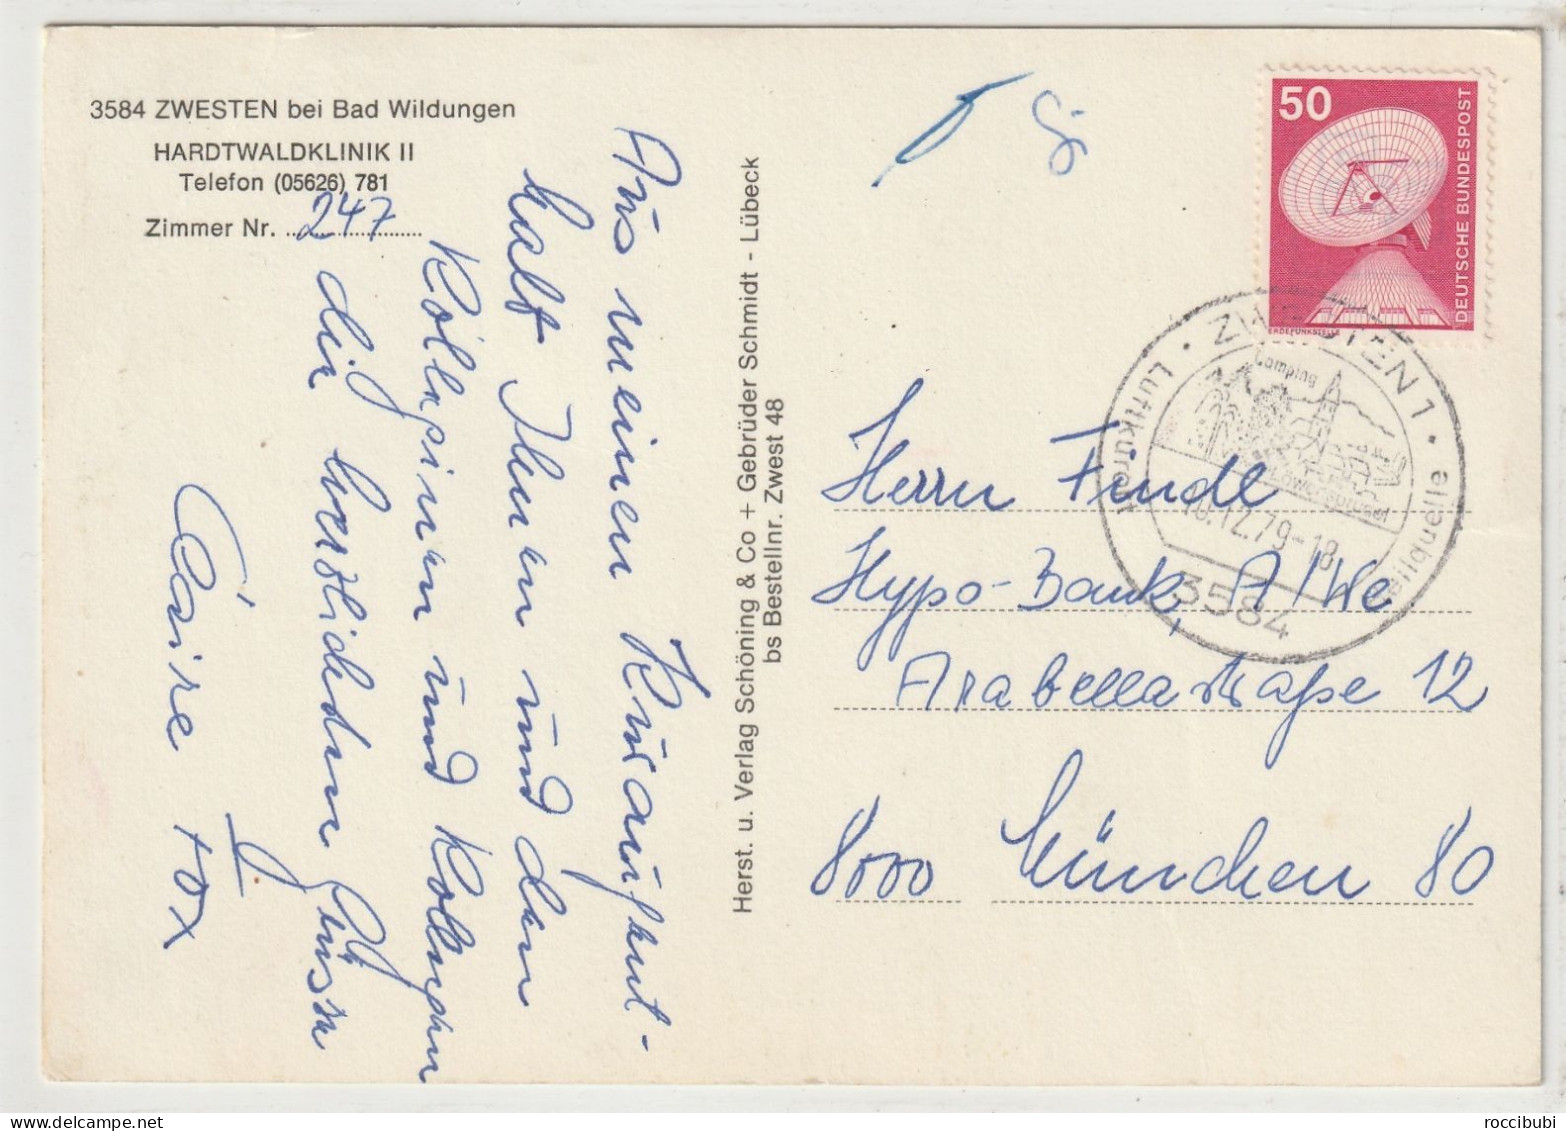 3584 ZWESTEN bei Bad Wildungen
HARDTWALDKLINIK II
Telefon (05626) 781
Zimmer Nr. 247
Aus meinem Kuraufent-
halt Ihnen und den
Kolleginnen und Kollegen
die herzlichsten Grüsse
Claire Fox
Herst. u. Verlag Schöning & Co + Gebrüder Schmidt - Lübeck
bs Bestellnr. Zwest 48
50
DEUTSCHE BUNDESPOST
ERDEFUNKSTELLE
ZWESTEN 1
Luftkurort
Heilquelle
Camping
Löwensprudel
10.12.79-18
3584
Herrn Findl
Hypo-Bank, A/We
Arabellastraße 12
8000 München 80
roccibubi